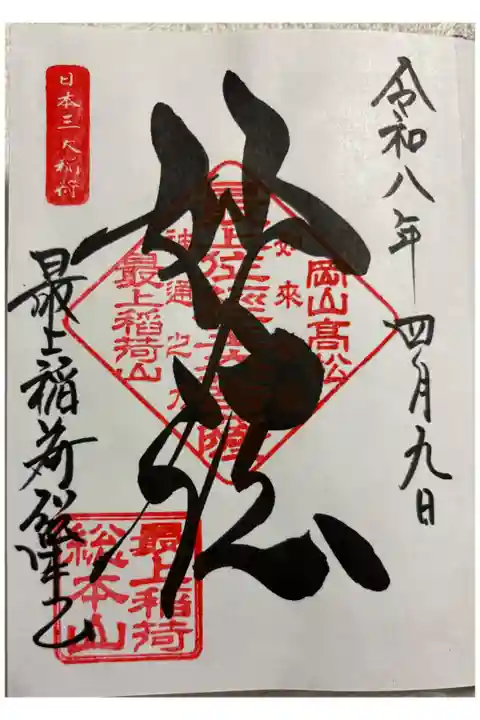 令和八年 四月九日
妙法
岡山髙松
如來
神通之力
最上稲荷山
日本三大稲荷
最上稲荷総本山
最上稲荷
総本山